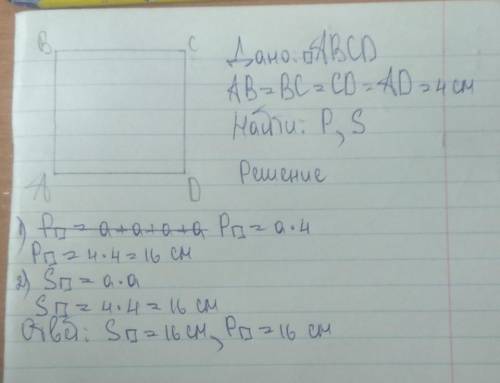 B C
Дано: □ABCD
AB=BC=CD=AD=4 см
Найти: P, S
A D
Решение
1) P□ = a+a+a+a P□ = a·4
P□ = 4·4 = 16 см
2) S□ = a·a
S□ = 4·4 = 16 см
Ответ: S□ = 16 см, P□ = 16 см